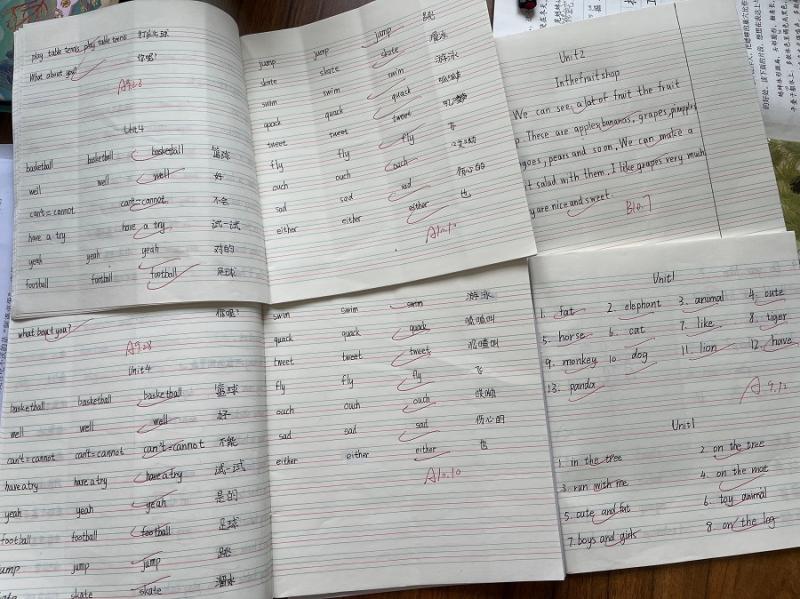 play table tennis play table tennis 打乒乓球
What about you? 你呢?
A9.28
Unit4
basketball basketball basketball 篮球
well well well 好
can't=cannot can't=cannot 不会
have a try have a try 试一试
yeah yeah yeah 对的
football football football 足球
jump jump jump 跳
skate skate skate
swim swim swim 游泳
quack quack quack
tweet tweet tweet
fly fly fly 飞
ouch ouch ouch
sad sad sad 伤心的
either either either 也
A10.10
Unit2
Inthefruitshop
We can see a lot of fruit the fruit
p. These are apples, bananas, grapes, pineapples
goes, pears and soon. We can make a
t salad with them. I like grapes very much
y are nice and sweet.
B10.7
what about you? 你呢?
A9.28
Unit4
basketball basketball basketball 篮球
well well well 好
can't=cannot can't=cannot 不能
have a try have a try have a try 试一试
yeah yeah yeah 是的
football football football 足球
jump jump jump 跳
skate skate 溜冰
swim swim swim 游泳
quack quack quack
tweet tweet tweet
fly fly fly 飞
ouch ouch ouch
sad sad sad 伤心的
either either either 也
A10.10
Unit1
1. fat 2. elephant 3. animal 4. cute
5. horse 6. cat 7. like 8. tiger
9. monkey 10. dog 11. lion 12. have
13. panda
A9.12
Unit1
1. in the tree 2. on the tree
3. run with me 4. on the mat
5. cute and fat 6. toy animal
7. boys and girls 8. on the log